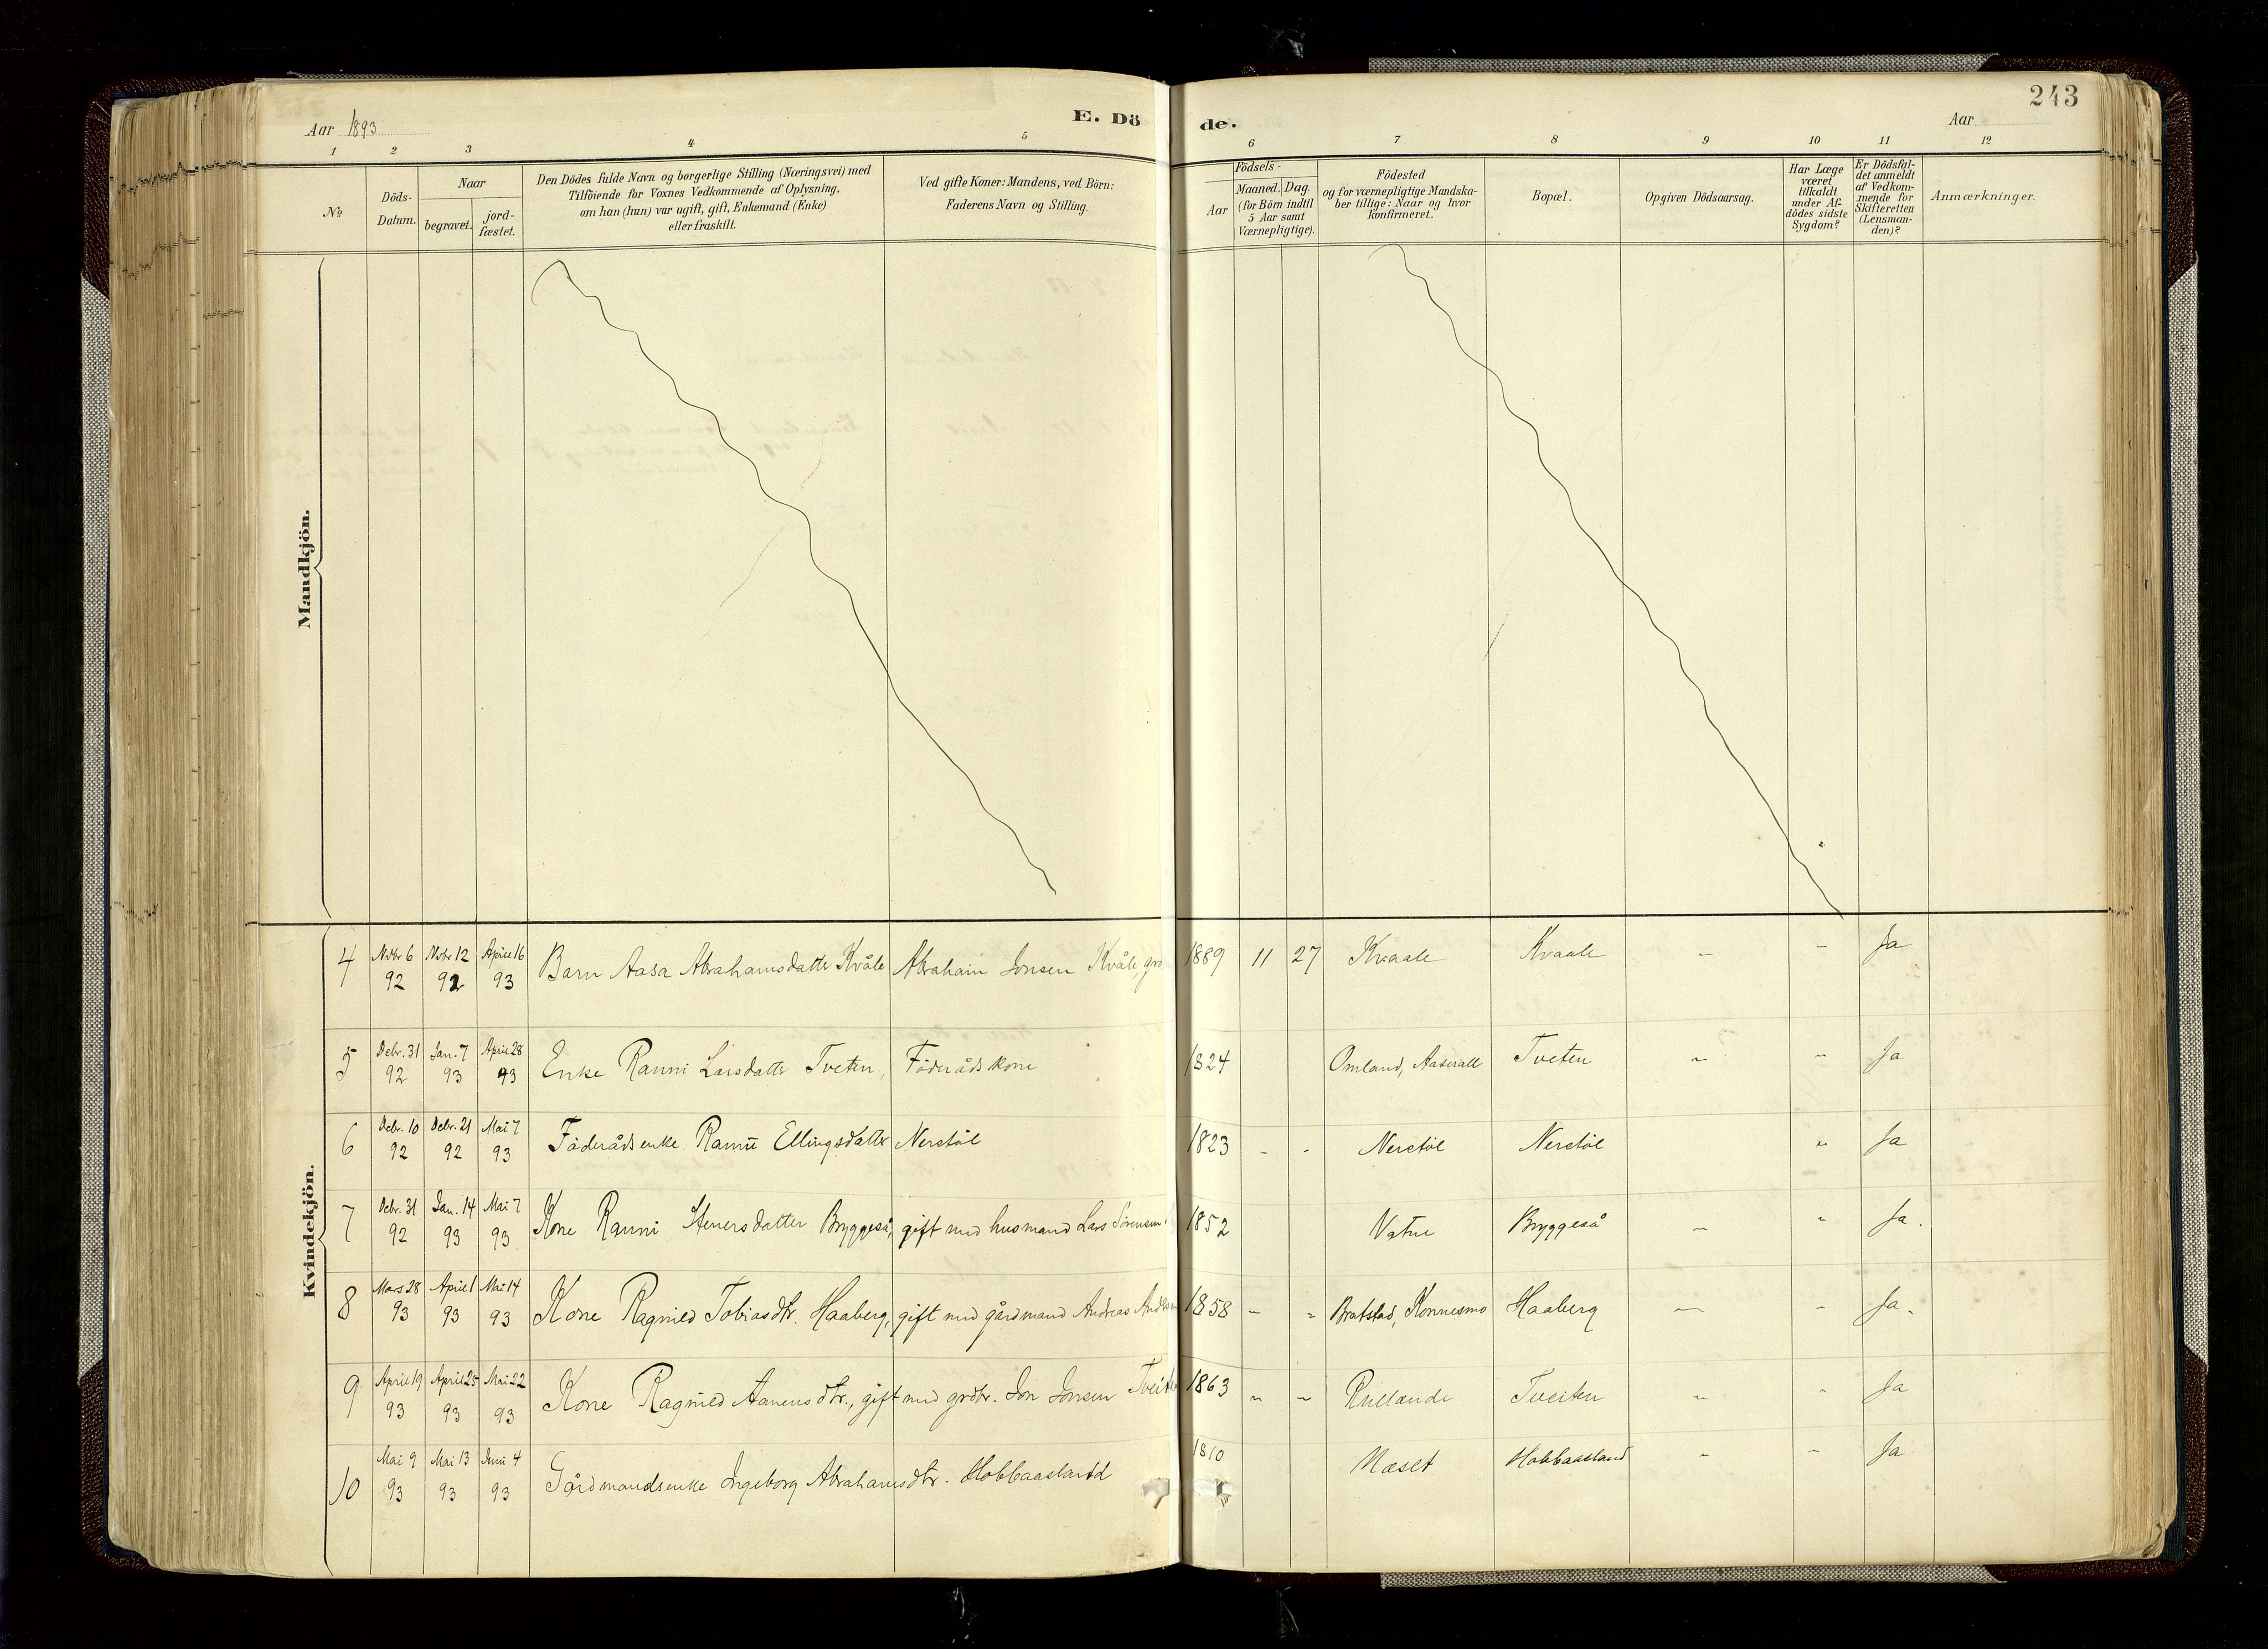 243
Aar 1893
E. Dö
de.
Aar
1 2 3 4 5 6 7 8 9 10 11 12
No
Döds-
Datum.
Naar
begravet.
jord-
fæstet.
Den Dödes fulde Navn og borgerlige Stilling (Næringsvei) med
Tilföiende for Voxnes Vedkommende af Oplysning,
om han (hun) var ugift, gift, Enkemand (Enke)
eller fraskilt.
Ved gifte Koner: Mandens, ved Börn:
Faderens Navn og Stilling.
Födsels-
Aar
Maaned. Dag.
(for Börn indtil
5 Aar samt
Værnepligtige).
Födested
og for værnepligtige Mandska-
ber tillige: Naar og hvor
konfirmeret.
Bopæl.
Opgiven Dödsaarsag.
Har Læge
været
tilkaldt
under Af-
dödes sidste
Sygdom?
Er Dödsfal-
det anmeldt
af Vedkom-
mende for
Skifteretten
(Lensman-
den)?
Anmærkninger.
Mandkjön.
Kvindekjön.
4 Novbr 6 92 Novbr 12 92 April 16 93 Barn Aasa Abrahamsdatter Kvåle Abraham Jonsen Kvåle, 1889 11 27 Kvaale Kvaale – – Ja
5 Debr. 31 92 Jan. 7 93 April 28 93 Enke Ranni Larsdatter Tveten, Föderådskone 1824 Omland, Aaserall Tveten – " Ja
6 Debr. 10 92 Debr. 21 92 Mai 7 93 Föderådsenke Ranni Ellingsdatter Nerstöl 1823 - - Nerstöl Nerstöl " Ja
7 Debr. 31 92 Jan. 14 93 Mai 7 93 Kone Ranni Stenersdatter Bryggeså, gift med husmand Lars Sörensen 1852 Vatne Bryggeså – " Ja.
8 Mars 28 93 April 1 93 Mai 14 93 Kone Ragnild Tobiasdtr. Haaberg, gift med gårdmand Andreas 1858 – " Bratstad, Konnesmo Haaberg – - Ja.
9 April 19 93 April 25 93 Mai 22 93 Kone Ragnild Aanensdtr., gift med grdbr. Jon Jonsen Tveiten 1863 – – Rullandi Tveiten – " Ja
10 Mai 9 93 Mai 13 93 Juni 4 93 Gårdmandsenke Ingeborg Abrahamsdtr. Hobbaasland 1810 Næset Hobbaasland – – Ja